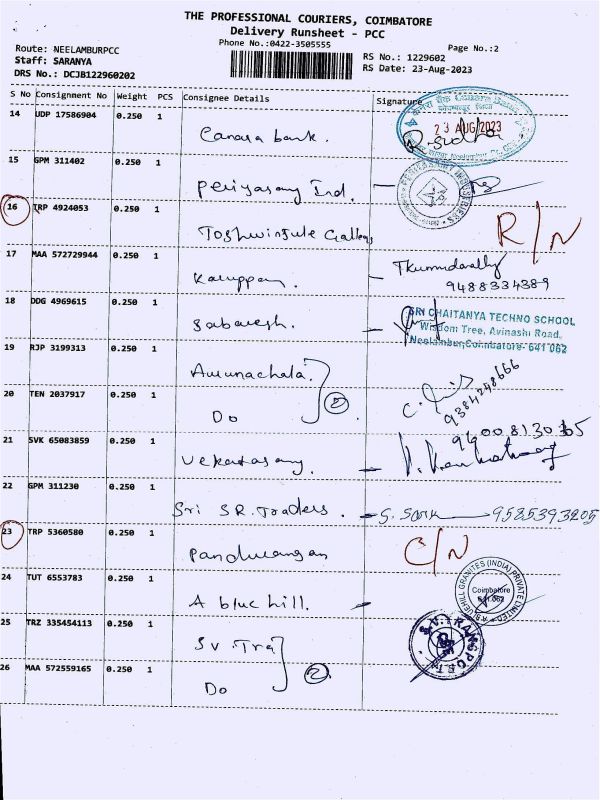 THE PROFESSIONAL COURIERS, COIMBATORE
Delivery Runsheet - PCC
Phone No.:0422-3505555
Page No.:2
Route: NEELAMBURPCC
Staff: SARANYA
DRS No.: DCJB122960202
RS No.: 1229602
RS Date: 23-Aug-2023
S No Consignment No Weight PCS Consignee Details Signature
14 UDP 17586904 0.250 1
Canara bank.
23 AUG 2023
15 GPM 311402 0.250 1
Periyasamy Ind.
16 TRP 4924053 0.250 1
R/N
17 MAA 572729944 0.250 1
Karuppan.
9488334389
18 DDG 4969615 0.250 1
Sabaresh.
SRI CHAITANYA TECHNO SCHOOL
Wisdom Tree, Avinashi Road,
Neelambur, Coimbatore- 641 062
19 RJP 3199313 0.250 1
Arunachala.
20 TEN 2037917 0.250 1
Do
2
9384248666
21 SVK 65083859 0.250 1
Vekatasamy.
22 GPM 311230 0.250 1
Sri SR. Traders. 9585393205
23 TRP 5360580 0.250 1
Pandurangan
C/N
24 TUT 6553783 0.250 1
A blue hill.
BLUEHILL GRANITES (INDIA) PRIVATE LIMITED
Coimbatore
641 062
25 TRZ 335454113 0.250 1
SV. Tra
S.V. TRANSPORT
26 MAA 572559165 0.250 1
Do
2